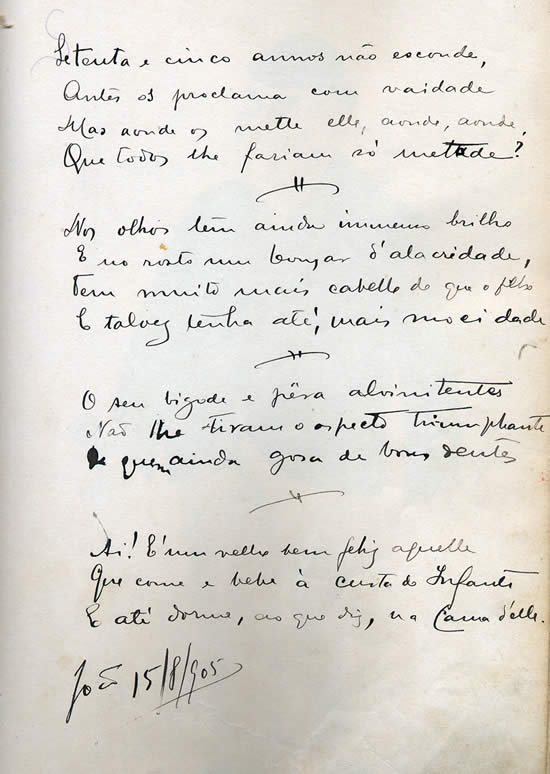 Setenta e cinco annos não esconde,
Antes os proclama com vaidade
Mas aonde os mette elle, aonde, aonde,
Que todos lhe fariam só metade?
Nos olhos tem ainda immenso brilho
E no rosto um d'alacridade,
Tem muito mais cabello do que o filho
E talvez tenha até, mais mocidade
O seu bigode e pêra alvinitentes
Não lhe tiram o aspecto triumphante
de quem ainda gosa de bons dentes
Ai! É um velho bem feliz aquelle
Que come e bebe à custa do Infante
E até dorme, ao que diz, na Cama d'elle.
João 15/8/905